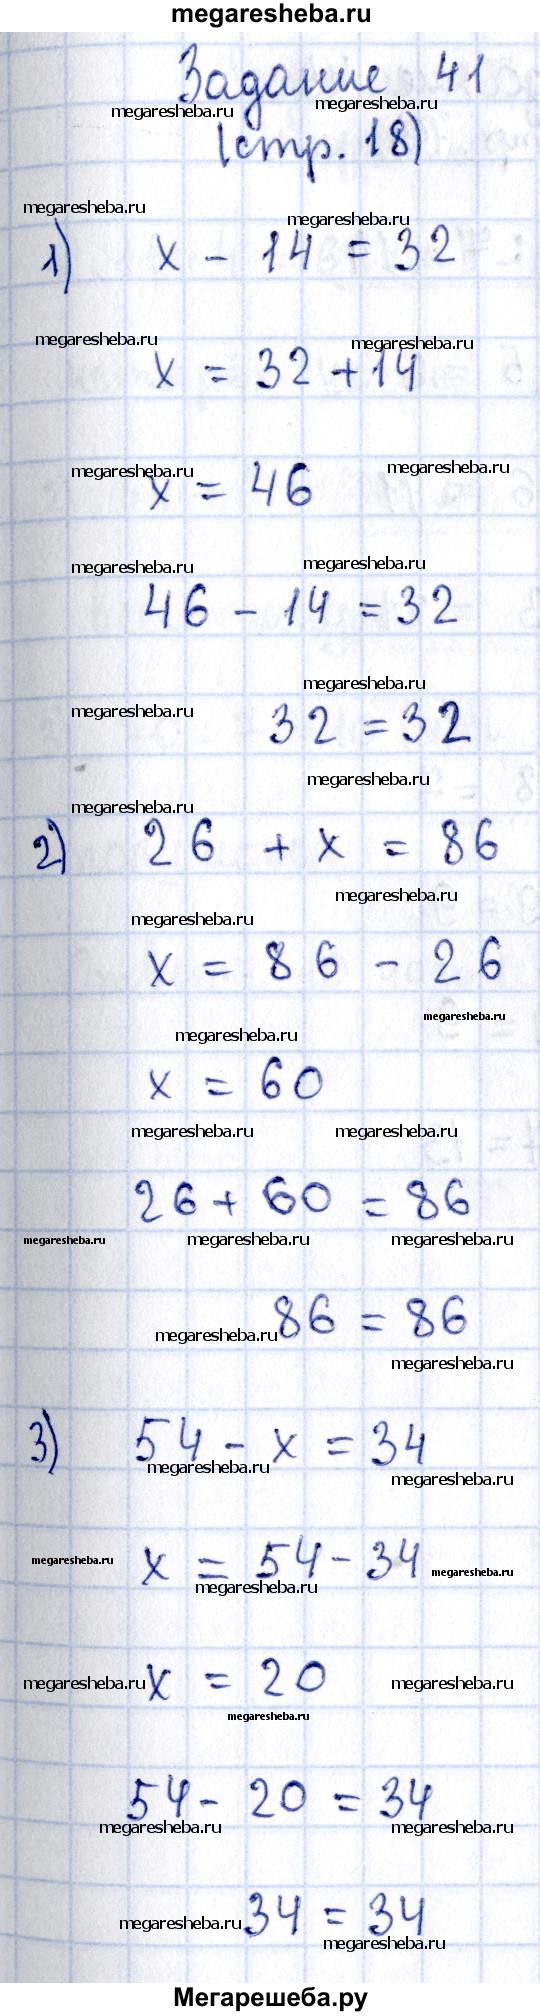 megaresheba.ru
Задание 41
megaresheba.ru megaresheba.ru
(стр. 18)
megaresheba.ru megaresheba.ru
1) x - 14 = 32
megaresheba.ru megaresheba.ru
x = 32 + 14
megaresheba.ru megaresheba.ru
x = 46
megaresheba.ru megaresheba.ru
46 - 14 = 32
megaresheba.ru megaresheba.ru
32 = 32
megaresheba.ru
megaresheba.ru
2) 26 + x = 86
megaresheba.ru
megaresheba.ru
x = 86 - 26
megaresheba.ru
megaresheba.ru
x = 60
megaresheba.ru megaresheba.ru
26 + 60 = 86
megaresheba.ru megaresheba.ru megaresheba.ru
86 = 86
megaresheba.ru
megaresheba.ru
3) 54 - x = 34
megaresheba.ru
megaresheba.ru
x = 54 - 34
megaresheba.ru megaresheba.ru
megaresheba.ru
x = 20
megaresheba.ru megaresheba.ru
megaresheba.ru
54 - 20 = 34
megaresheba.ru megaresheba.ru
34 = 34
megaresheba.ru
megaresheba.ru
Мегарешеба.ру